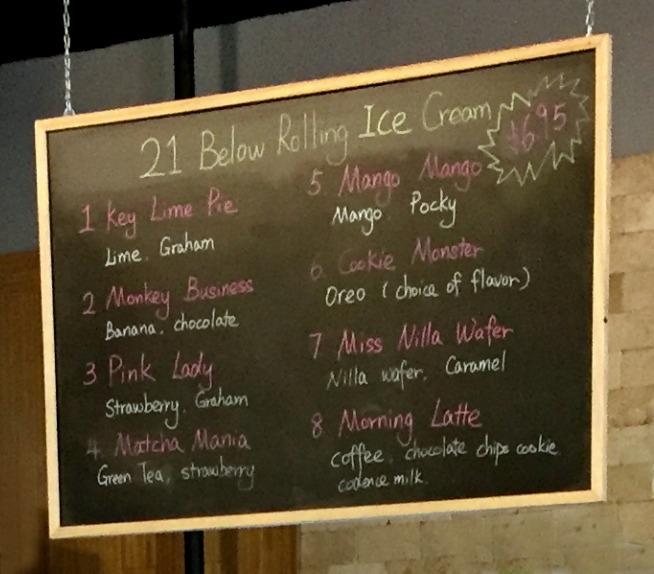 21 Below Rolling Ice Cream
$6.95
1 Key Lime Pie
Lime. Graham
2 Monkey Business
Banana, chocolate
3 Pink Lady
Strawberry, Graham
4. Matcha Mania
Green Tea, strawberry
5. Mango Mango
Mango Pocky
6. Cookie Monster
Oreo (choice of flavor)
7 Miss Nilla Wafer
Nilla wafer, Caramel
8 Morning Latte
coffee, chocolate chips cookie
milk.